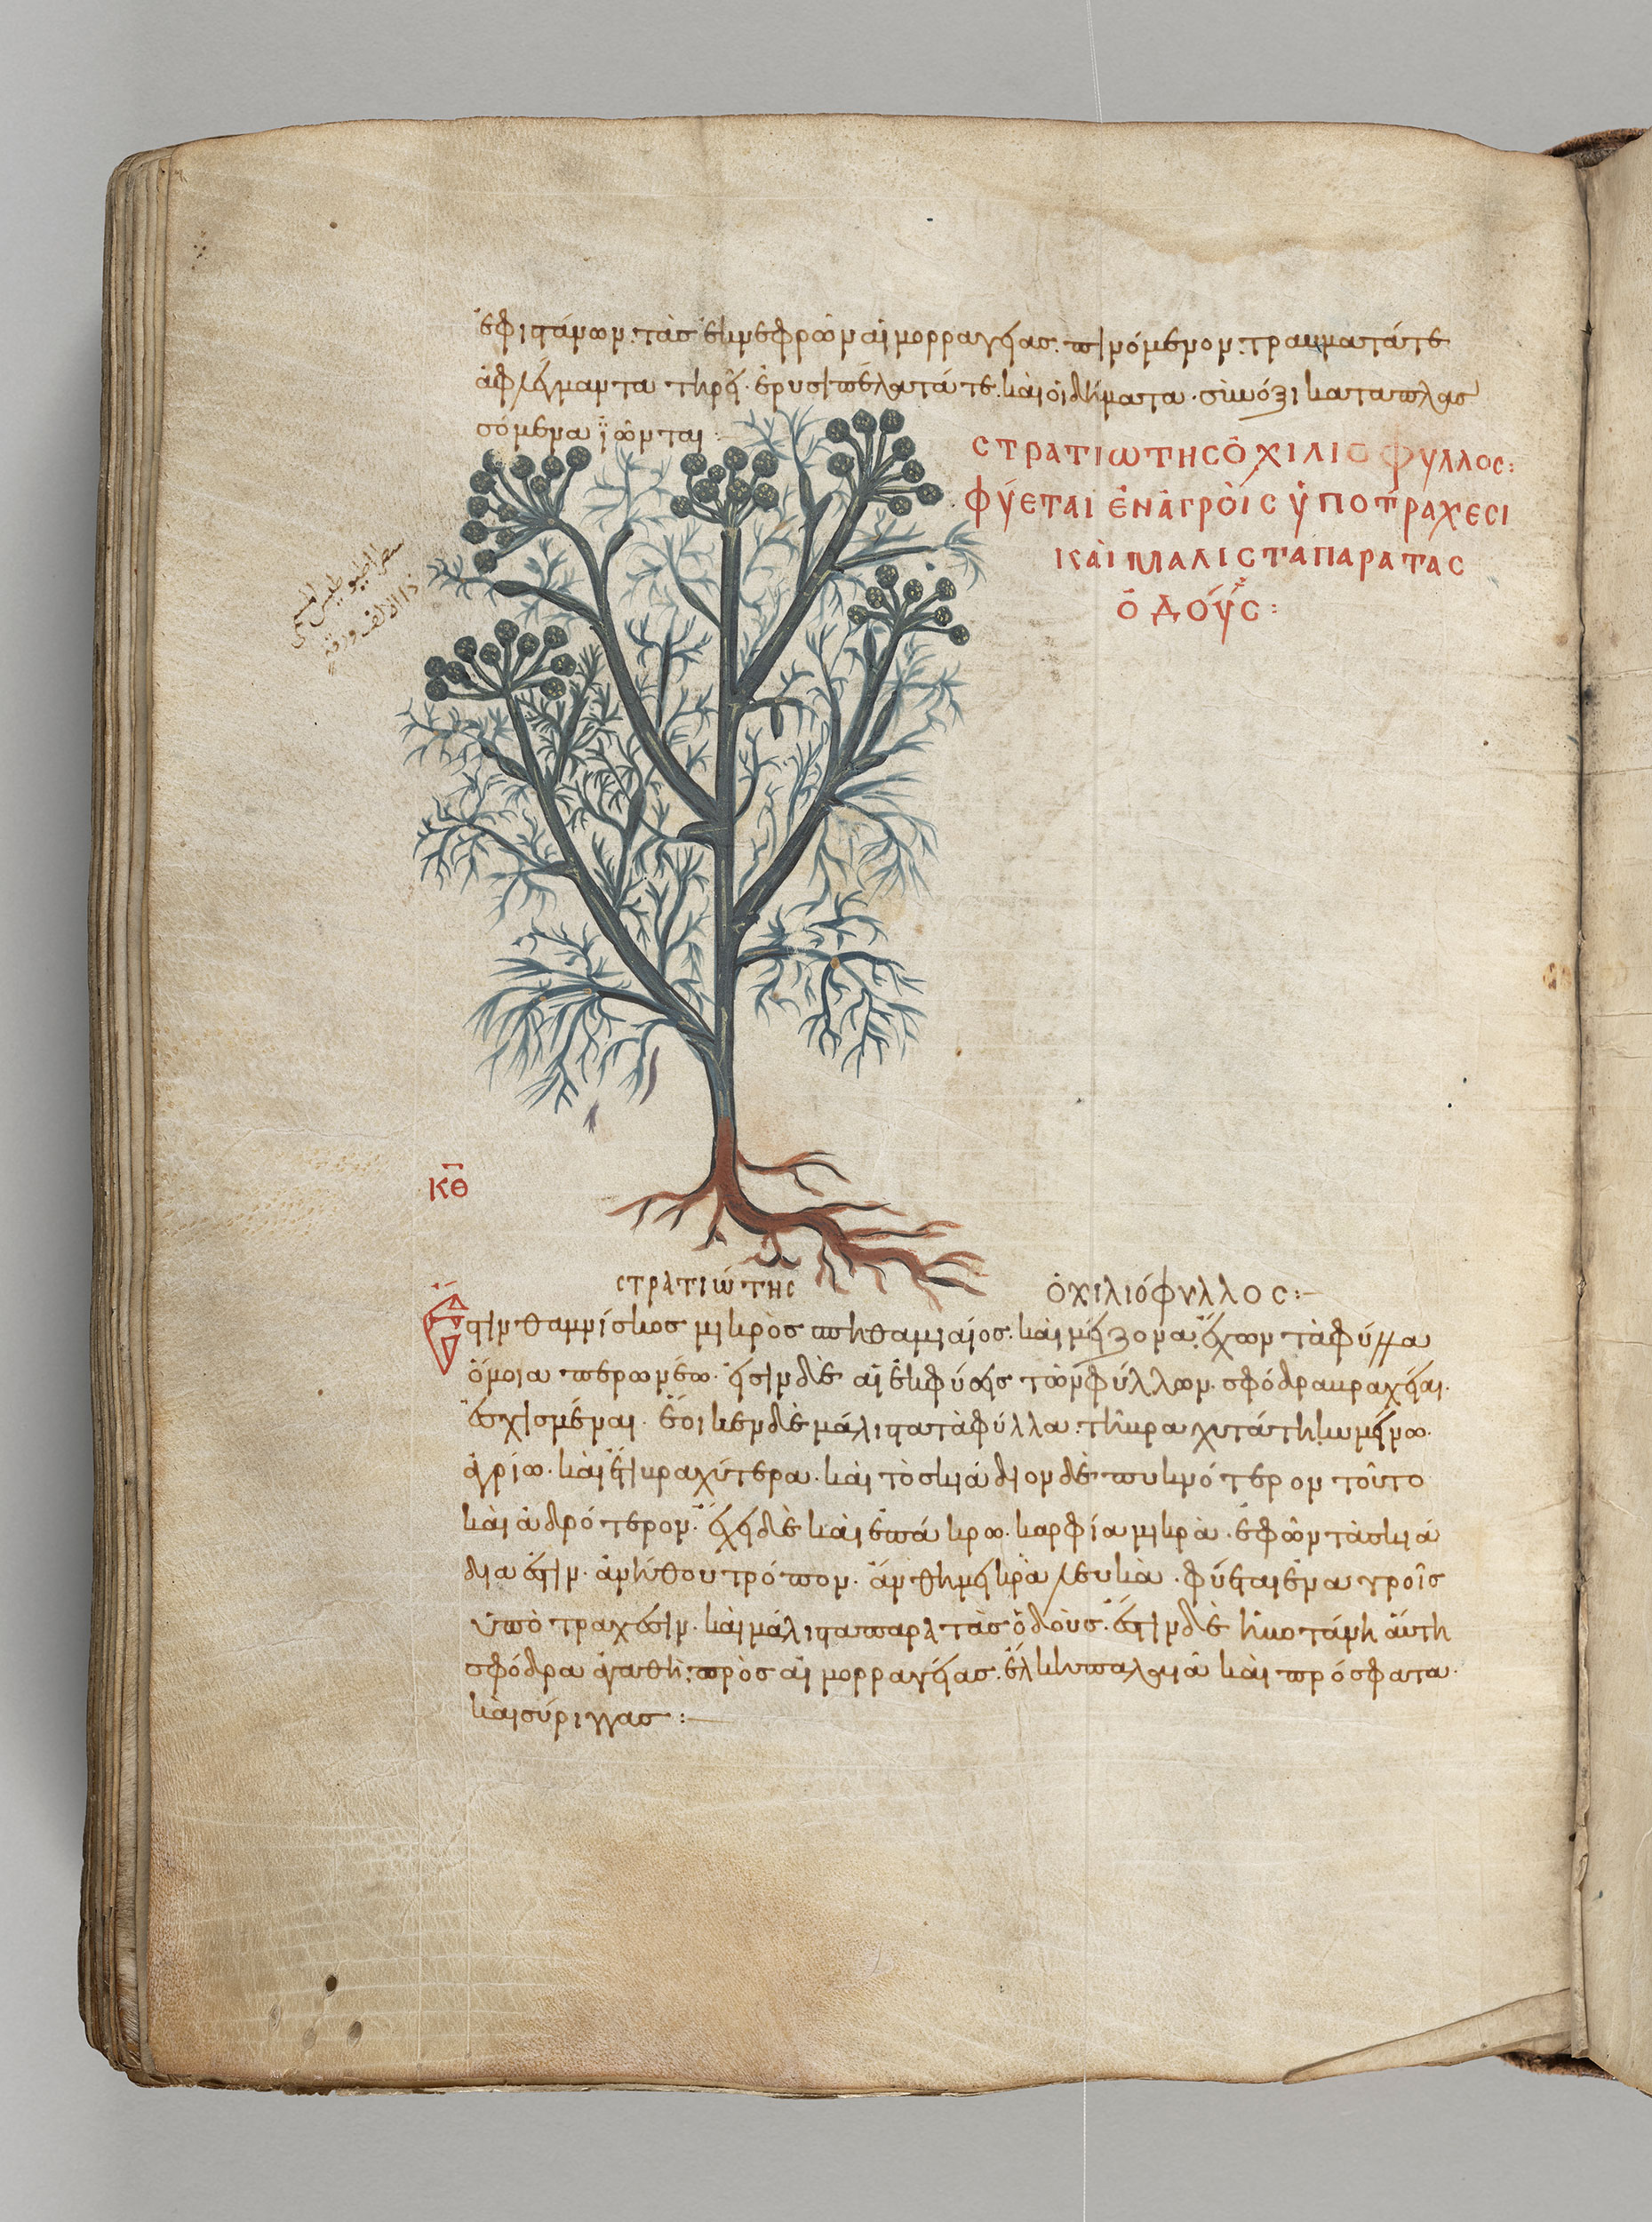 ἐφιστάνων· τὰς ἐκ νεφρῶν αἱμορραγίας· πινόμενον· τραύματά τε
ἀφλέγμαντα τηρεῖ· ἐρυσιπέλατά τε· καὶ οἰδήματα· σὺν ὄξει καταπλασ
σόμενα ἰῶνται:
ϹΤΡΑΤΙΩΤΗϹ Ὁ ΧΙΛΙΟΦΥΛΛΟϹ:
ΦΥΕΤΑΙ ΕΝ ΑΓΡΟΙϹ ΥΠΟΤΡΑΧΕϹΙ
ΚΑΙ ΜΑΛΙϹΤΑ ΠΑΡΑ ΤΑϹ
ΟΔΟΥϹ:
سطراطيوطيس
ذا الالف ورقة
ΚΘ
ϹΤΡΑΤΙΩΤΗϹ Ὁ ΧΙΛΙΟΦΥΛΛΟϹ:
ἔστιν θαμνίσκος μικρὸς σπηθαμιαῖος· καὶ μείζονα· ἔχων τὰ φύλλα
ὅμοια πτερῷ νέω· εἰσὶν δὲ αἱ ἐκφύσεις τῶν φύλλων· σφόδρα βραχεῖαι·
ἐσχισμέναι· ἔοικεν δὲ μάλιστα τὰ φύλλα· τῇ βραχυτάτῃ κυμίνω·
ἀγρίω· καὶ ἔτι βραχύτερα· καὶ τὸ σκιάδιον δὲ πυκνότερον τοῦτο
καὶ ἁδρότερον· ἔχει δὲ καὶ ἐπ' ἄκρω· καρφία μικρὰ· ἐφ' ὧν τὰ σκιά
διά ἐστιν· ἀνήθου τρόπον· ἄνθη μικρὰ λευκὰ· φύεται ἐν ἀγροῖς
ὑπὸ τραχέσιν· καὶ μάλιστα παρὰ τὰς ὁδοὺς· ἔστιν δὲ ἡ βοτάνη αὕτη
σφόδρα ἀγαθὴ· πρὸς αἱμορραγίας· ἕλκη παλαιὰ καὶ πρόσφατα·
καὶ σύριγγας: